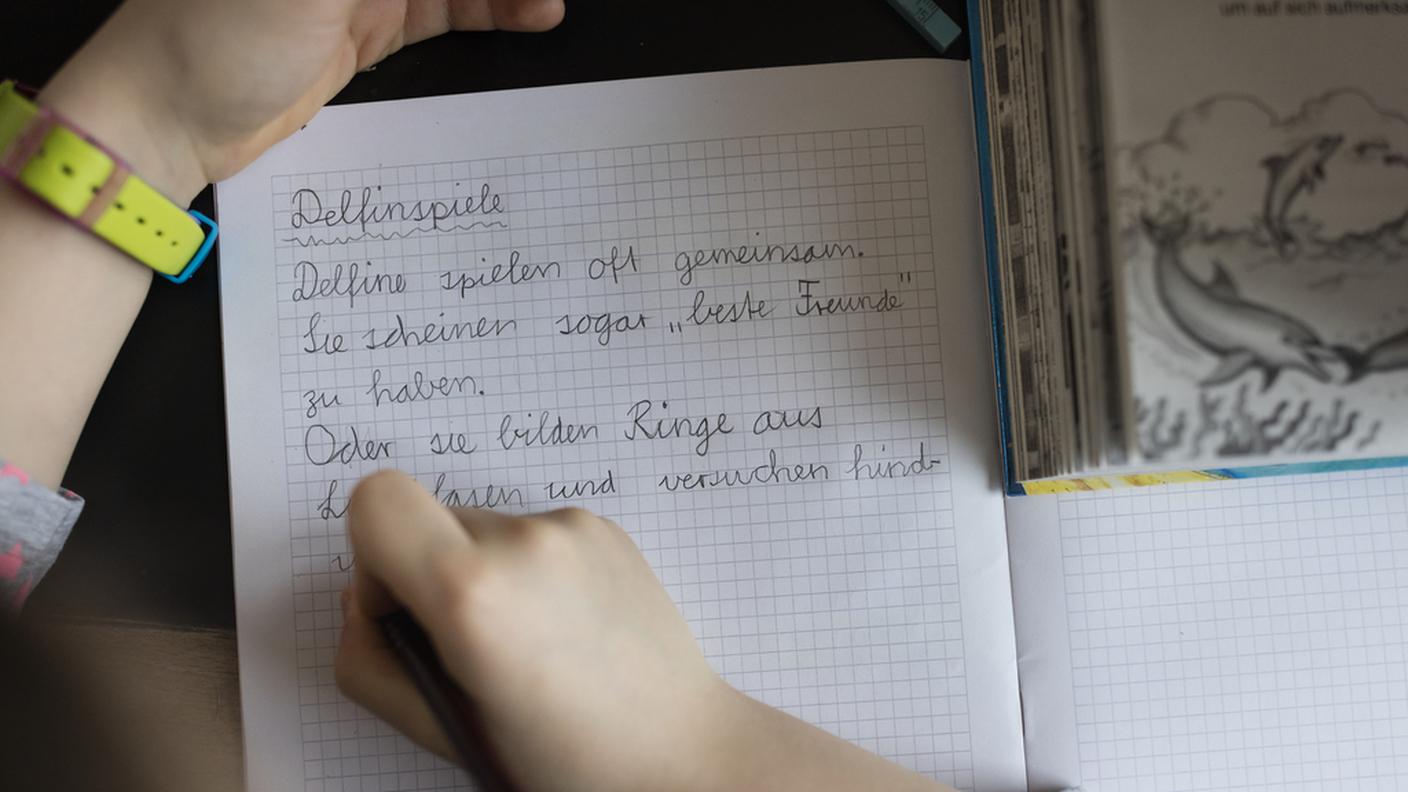 um auf sich aufmerksa
Delfinspiele
Delfine spielen oft gemeinsam.
Sie scheinen sogar „beste Freunde"
zu haben.
Oder sie bilden Ringe aus
und versuchen hind-